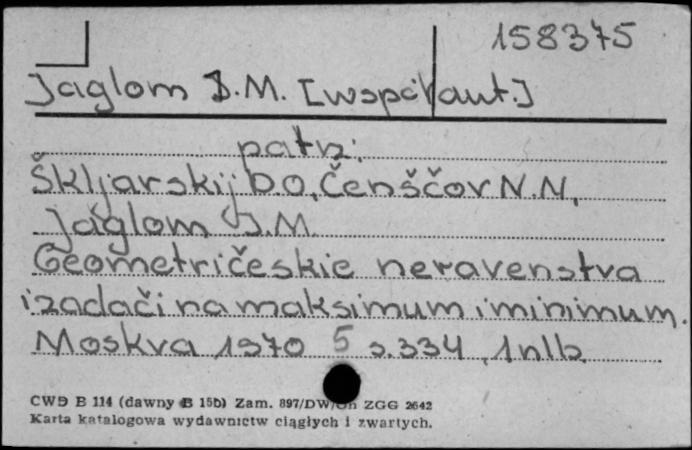 158375
Jaglom I.M. [współaut.]
patrz:
Škljarskij D.O., Čenščov N.N.,
Jaglom I.M.
Geometričeskie neravenstva
i zadači na maksimum i minimum.
Moskva 1970 s. 334, 1nlb.
CWD B 114 (dawny B 15b) Zam. 897/DW/ ZGG 2642
Karta katalogowa wydawnictw ciągłych i zwartych.